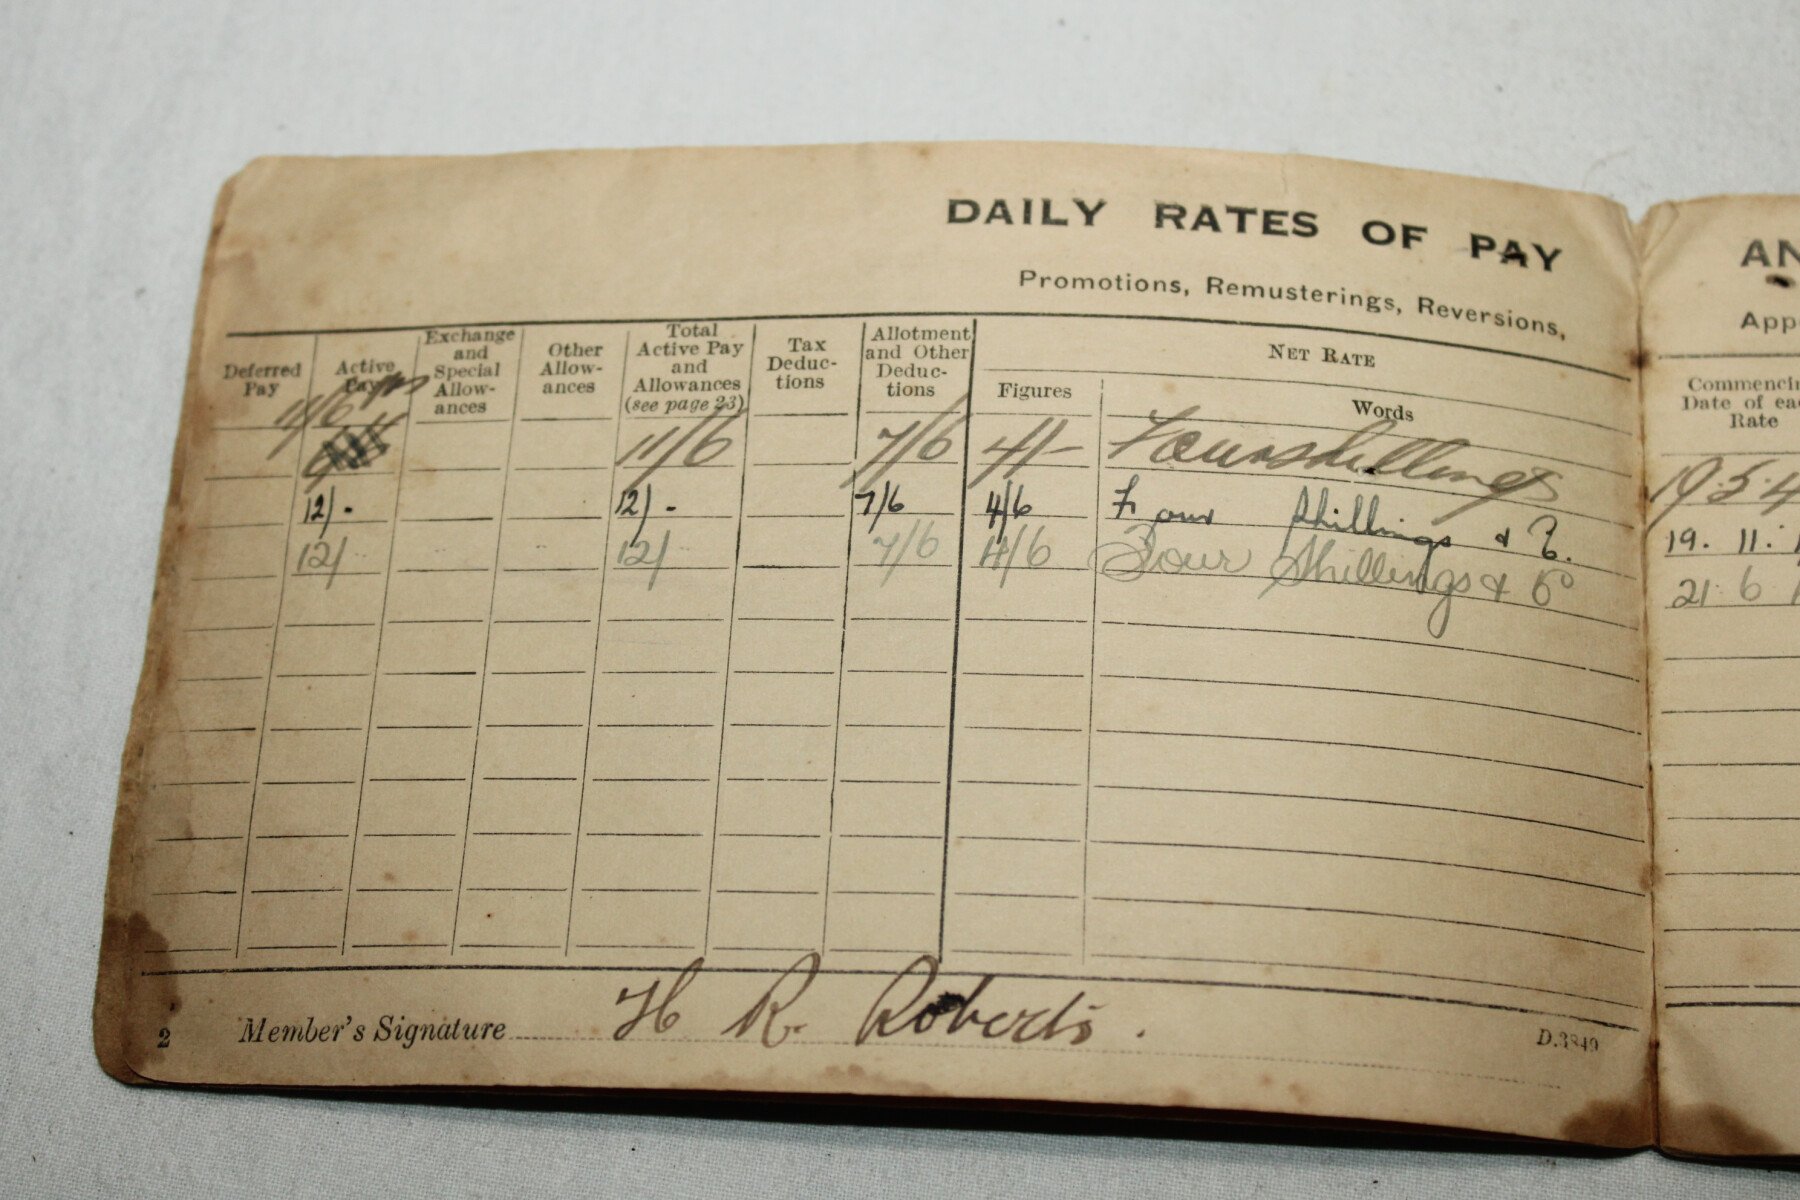 DAILY RATES OF PAY AN
Promotions, Remusterings, Reversions, App
Deferred Pay
Active Pay
Exchange and Special Allow-ances
Other Allow-ances
Total Active Pay and Allowances (see page 23)
Tax Deduc-tions
Allotment and Other Deduc-tions
NET RATE
Figures
Words
Commencin
Date of ea
Rate
11/6
11/6 7/6 4/- Four shillings 19.5.4
12/- 12/- 7/6 4/6 Four Shillings & 6. 19. 11. 
12/ 12/ 7/6 4/6 Four Shillings & 6D 21 6
2 Member's Signature H R. Roberts. D.3849